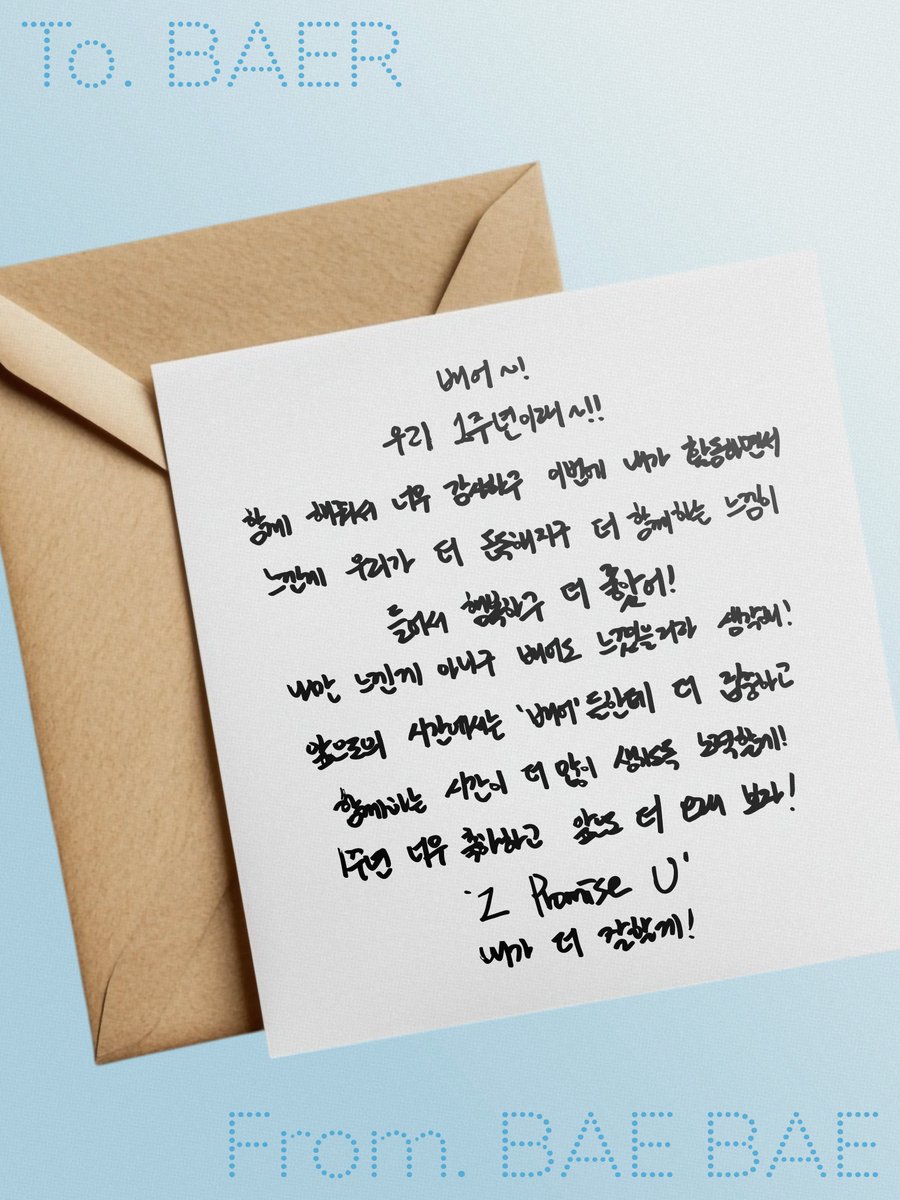 To. BAER
배어~!
우리 1주년이래~!!
함께 해줘서 너무 감사하구 이번에 내가 활동하면서
느낀게 우리가 더 돈독해지구 더 함께하는 느낌이
들어서 행복하구 더 좋았어!
나만 느낀게 아니구 배어도 느꼈을거라 생각해!
앞으로의 시간에서는 '배어'든한테 더 집중하고
함께하는 시간이 더 많이 생기도록 노력할게!
1주년 너무 축하하고 앞으로 더 오래 보자!
'I Promise U'
내가 더 잘할게!
From. BAE BAE